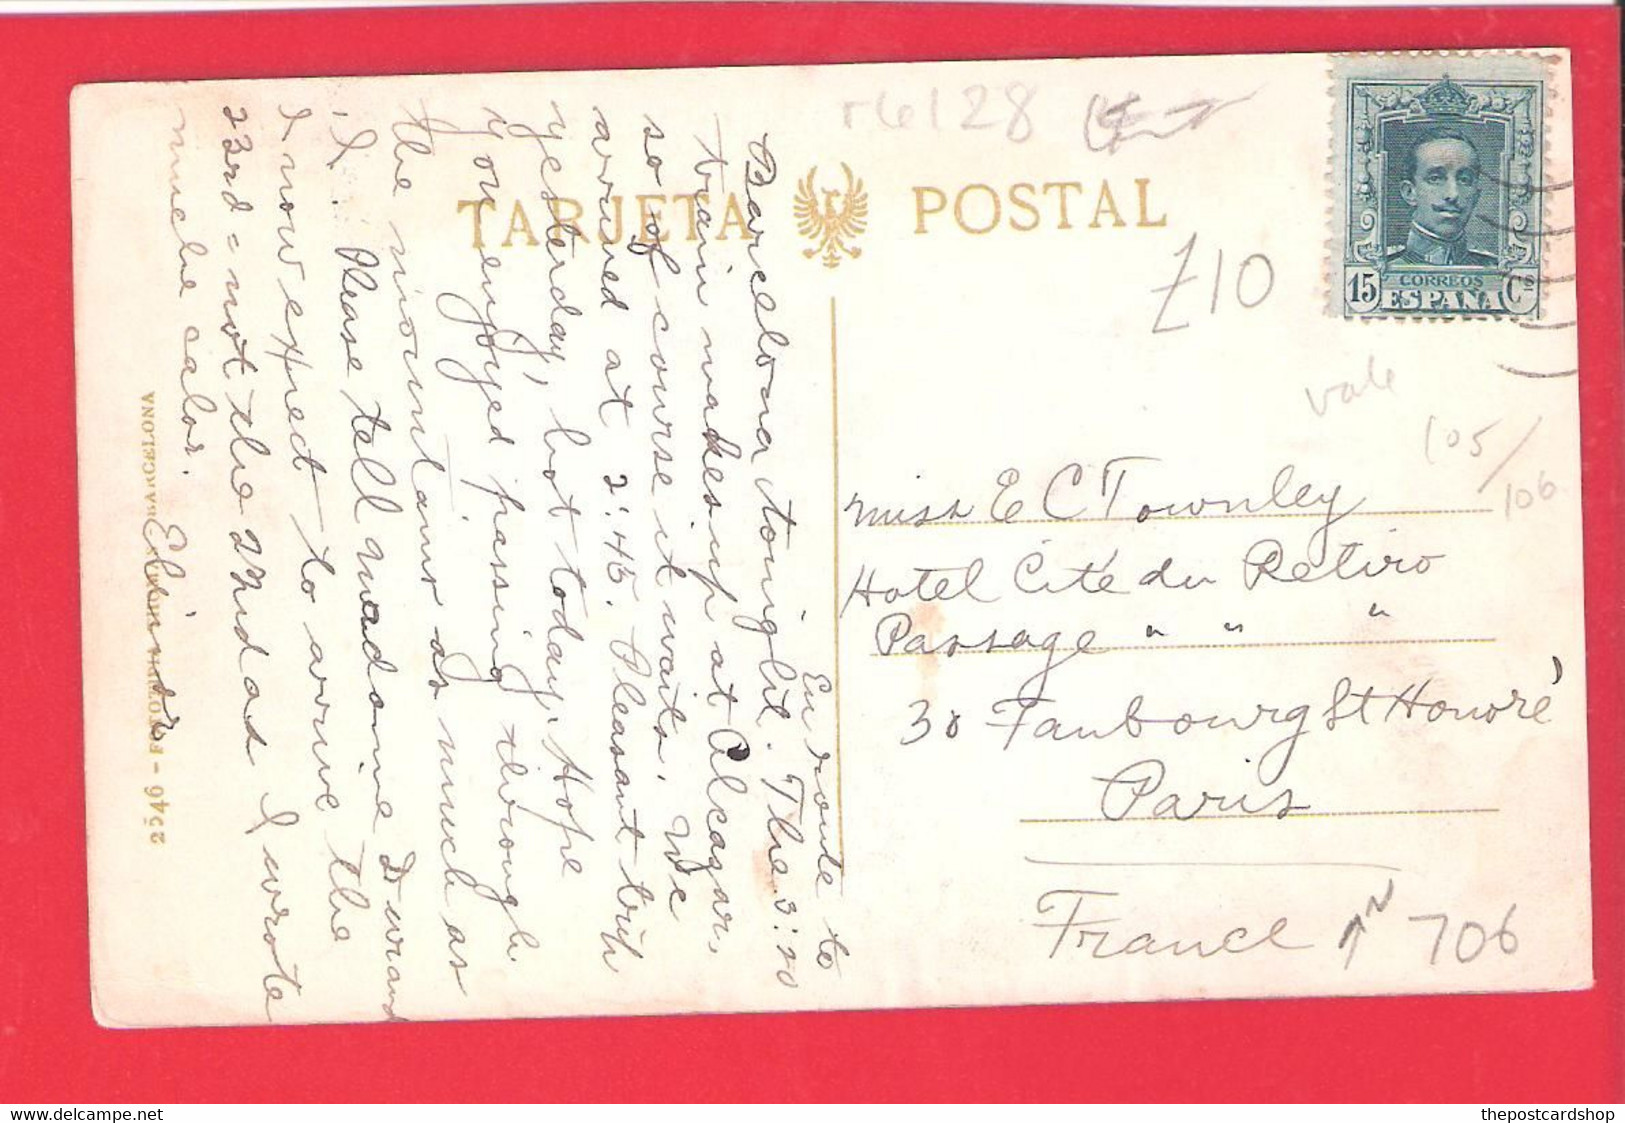 TARJETA POSTAL
r6128
£10
vale
105/106
CORREOS
15 ESPAÑA Cs
En route to
Barcelona tonight. The 3:20
train makes up at Alcazar,
so of course it waits. We
arrived at 2:45. Pleasant trip
yesterday, hot today. Hope
you enjoyed passing through
the mountains as much as
I. Please tell Madame Durand
I now expect to arrive the
23rd - not the 22nd as I wrote
mucho calor.
Miss E C Townley
Hotel Cité du Retiro
Passage " " "
30 Faubourg St Honoré
Paris
France
706
2546 - FOTOTIPIA
BARCELONA
thepostcardshop